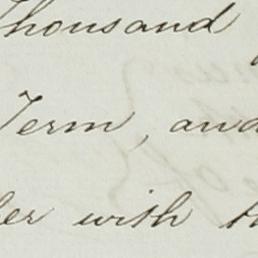 Thousand
Term, and
her with th